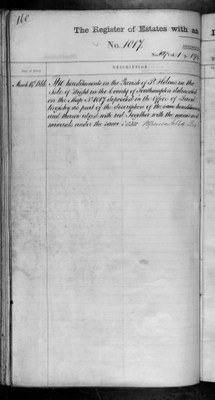 160
The Register of Estates with an
No. 1017.
DESCRIPTION
March 17 1866 All hereditaments in the Parish of St Helens in the
Isle of Wight in the County of Southampton delineated
on the Map No 1017 deposited in the Office of Land
Registry as part of the description of the same hereditaments
and therein edged with red Together with the mines and
minerals under the same